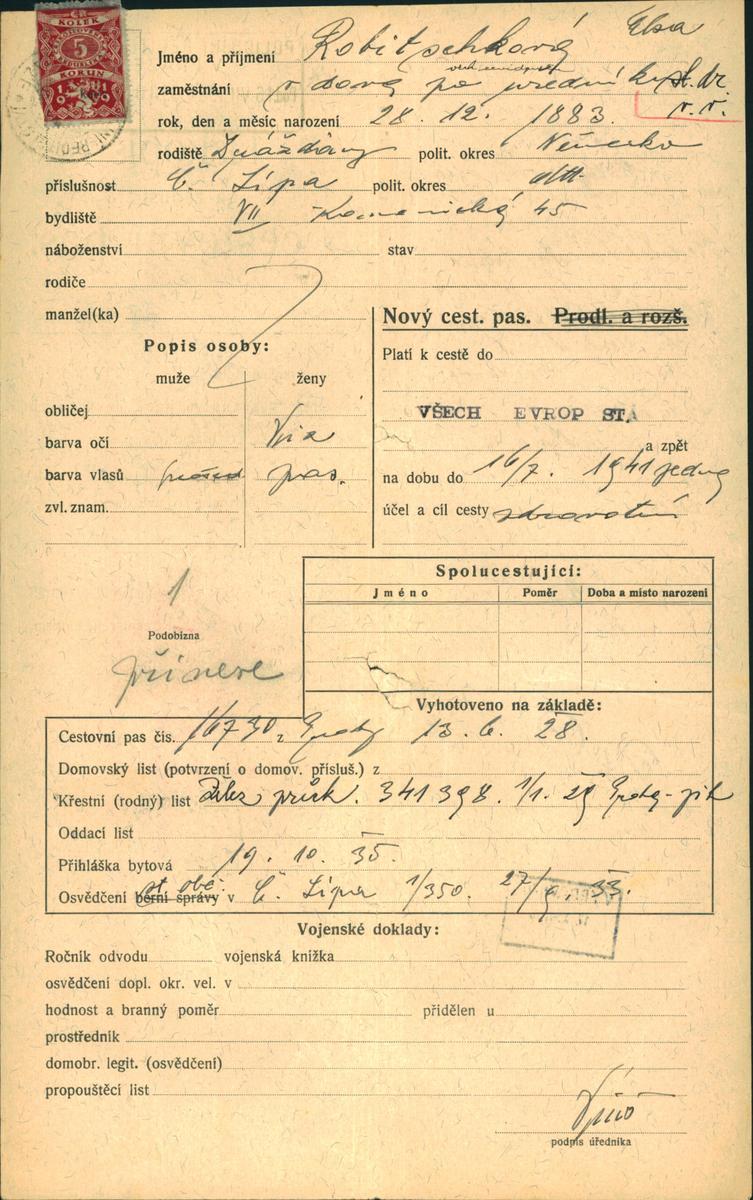 KOLEK
5
KORUN
Jméno a příjmení Robitschková Elsa
zaměstnání vdova po
rok, den a měsíc narození 28. 12. 1883.
rodiště polit. okres Německo
příslušnost Č. Lípa polit. okres dtto
bydliště VII Kamenická 45
náboženství stav
rodiče
manžel(ka)
Nový cest. pas. Prodl. a rozš.
Popis osoby:
muže ženy
Platí k cestě do
obličej
VŠECH EVROP ST.
barva očí
a zpět
barva vlasů pros.
na dobu do 16/7. 1941
zvl. znam.
účel a cíl cesty zdravotní
Spolucestující:
Jméno Poměr Doba a místo narození
1
Podobizna
přinese
Vyhotoveno na základě:
Cestovní pas čís. 16730 z Prahy 13. 6. 28.
Domovský list (potvrzení o domov. přísluš.) z
Křestní (rodný) list průk. 341398. 1/1. 29
Oddací list
Přihláška bytová 19. 10. 35.
Osvědčení berní správy st. obč. v Č. Lípa 1/350. 27/9. 33.
Vojenské doklady:
Ročník odvodu vojenská knížka
osvědčení dopl. okr. vel. v
hodnost a branný poměr přidělen u
prostředník
domobr. legit. (osvědčení)
propouštěcí list
podpis úředníka